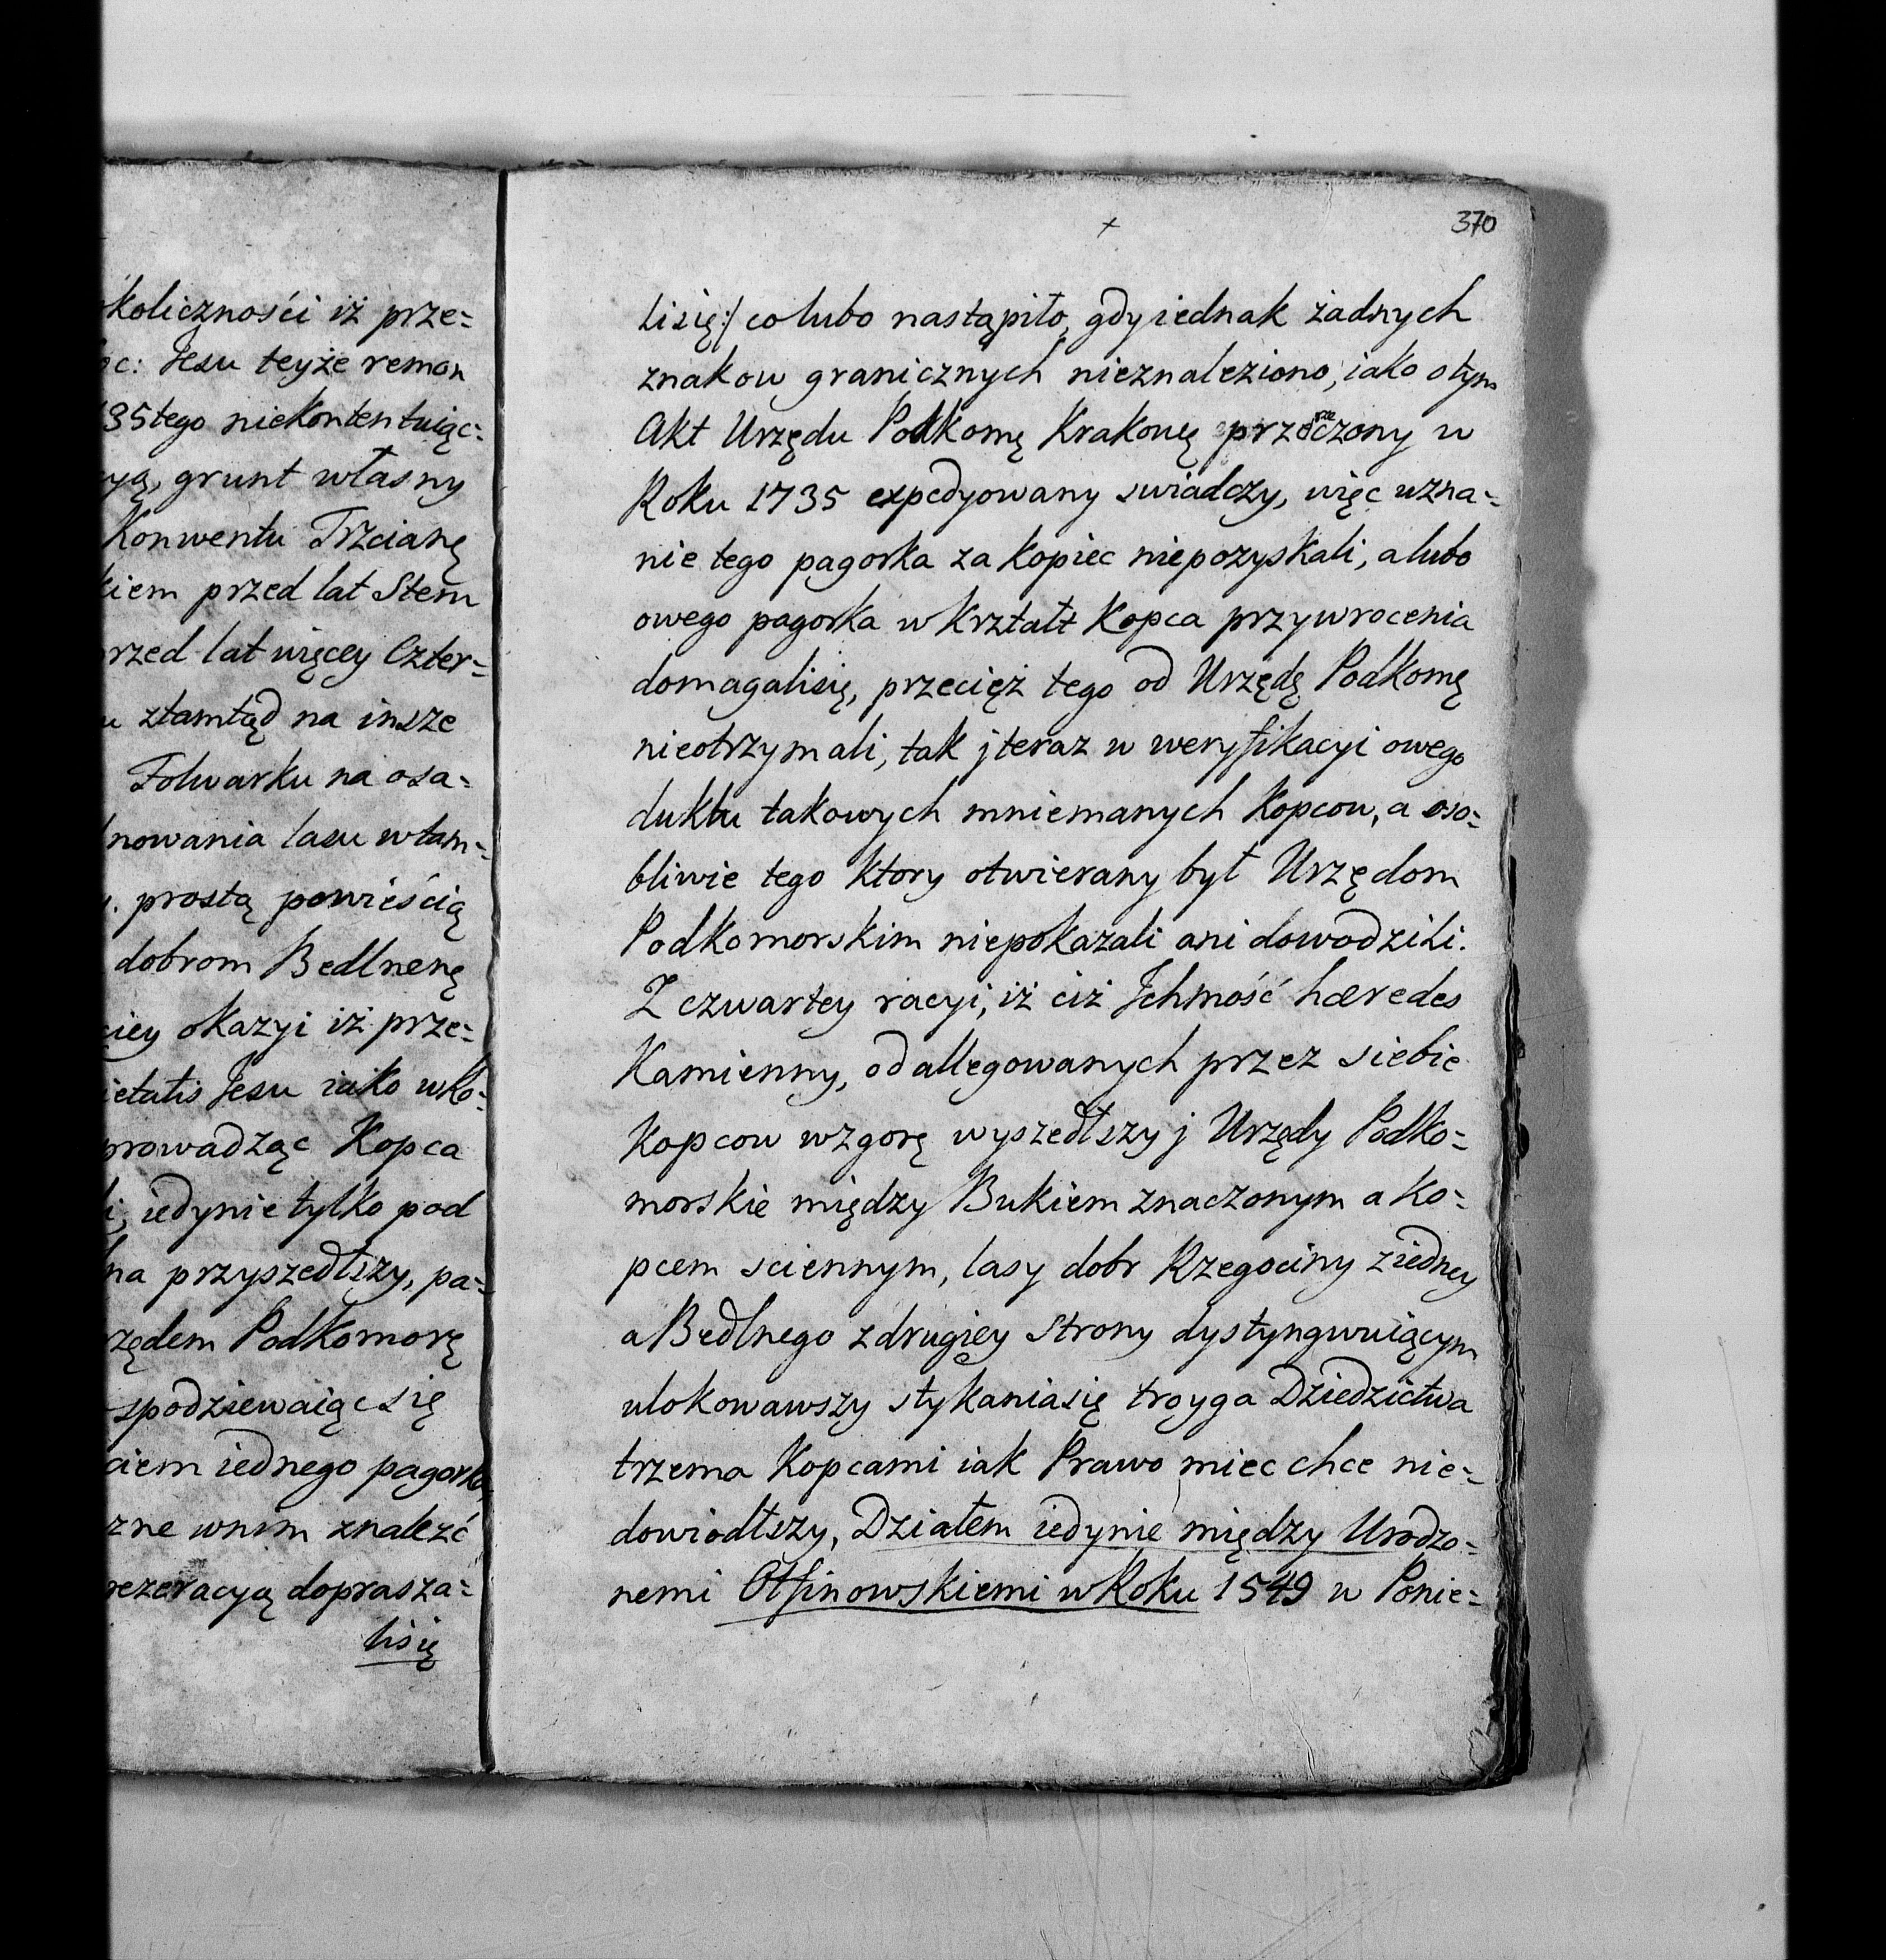 koliczności iż prze=
oc: Jesu teyże reman
35tego niekontentuiąc=
yą, grunt własny
Konwentu Trzcianę
kiem przed lat Stem
rzed lat więcey Czter=
u ztamtąd na insze
Folwarku na osa=
nowania lasu wtam=
prostą powieścią
dobrom Bedlnenę
ciey okazyi iż prze=
ietatis Jesu iako wko=
prowadząc Kopca
i, iedynie tylko pod
na przyszedłszy, pa=
zędem Podkomorę
spodziewaiąc się
ciem iednego pagorka
zne wnim znaleźć
rezeracyą doprasza=
lisię
370
lisię:/ co lubo nastąpiło, gdy iednak żadnych
znakow granicznych nieznaleziono, iako otym
Akt Urzędu Podkomę Krakowę przerzeczony w
Roku 1735 expedyowany swiadczy, więc uzna=
nie tego pagorka za Kopiec niepozyskali, a lubo
owego pagorka w Kształt Kopca przywrocenia
domagalisię, przecięż tego od Urzędę Podkomę
nieotrzymali, tak j teraz w weryfikacyi owego
duktu takowych mniemanych Kopcow, a oso=
bliwie tego Ktory otwierany był Urzędom
Podkomorskim niepokazali ani dowodzili.
Z czwartey racyi, iż ciż Jchmość hæredes
Kamienny, od allegowanych przez siebie
Kopcow wzgorę wyszedłszy j Urzędy Podko=
morskie między Bukiem znaczonym a Ko=
pcem sciennym, lasy dobr Rzegociny ziedney
a Bedlnego zdrugiey strony dystyngwuiącym
ulokowawszy stykaniasię troyga Dziedzictwa
trzema Kopcami iak Prawo miec chce nie=
dowiodłszy, Działem iedynie między Urodzo=
nemi Otfinowskiemi w Roku 1549 w Ponie=